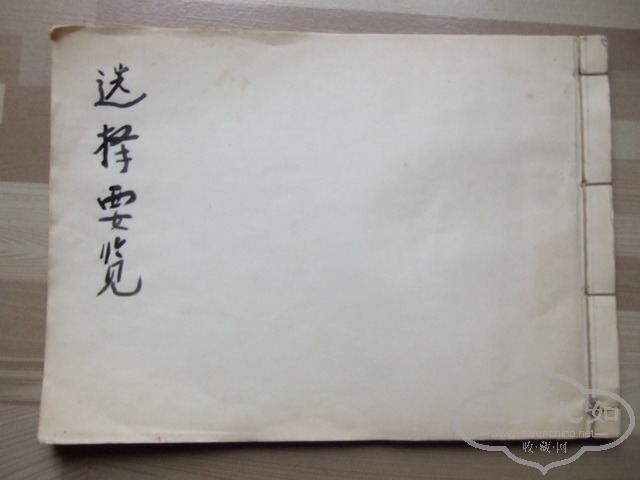 选择要览
如
收·藏·网